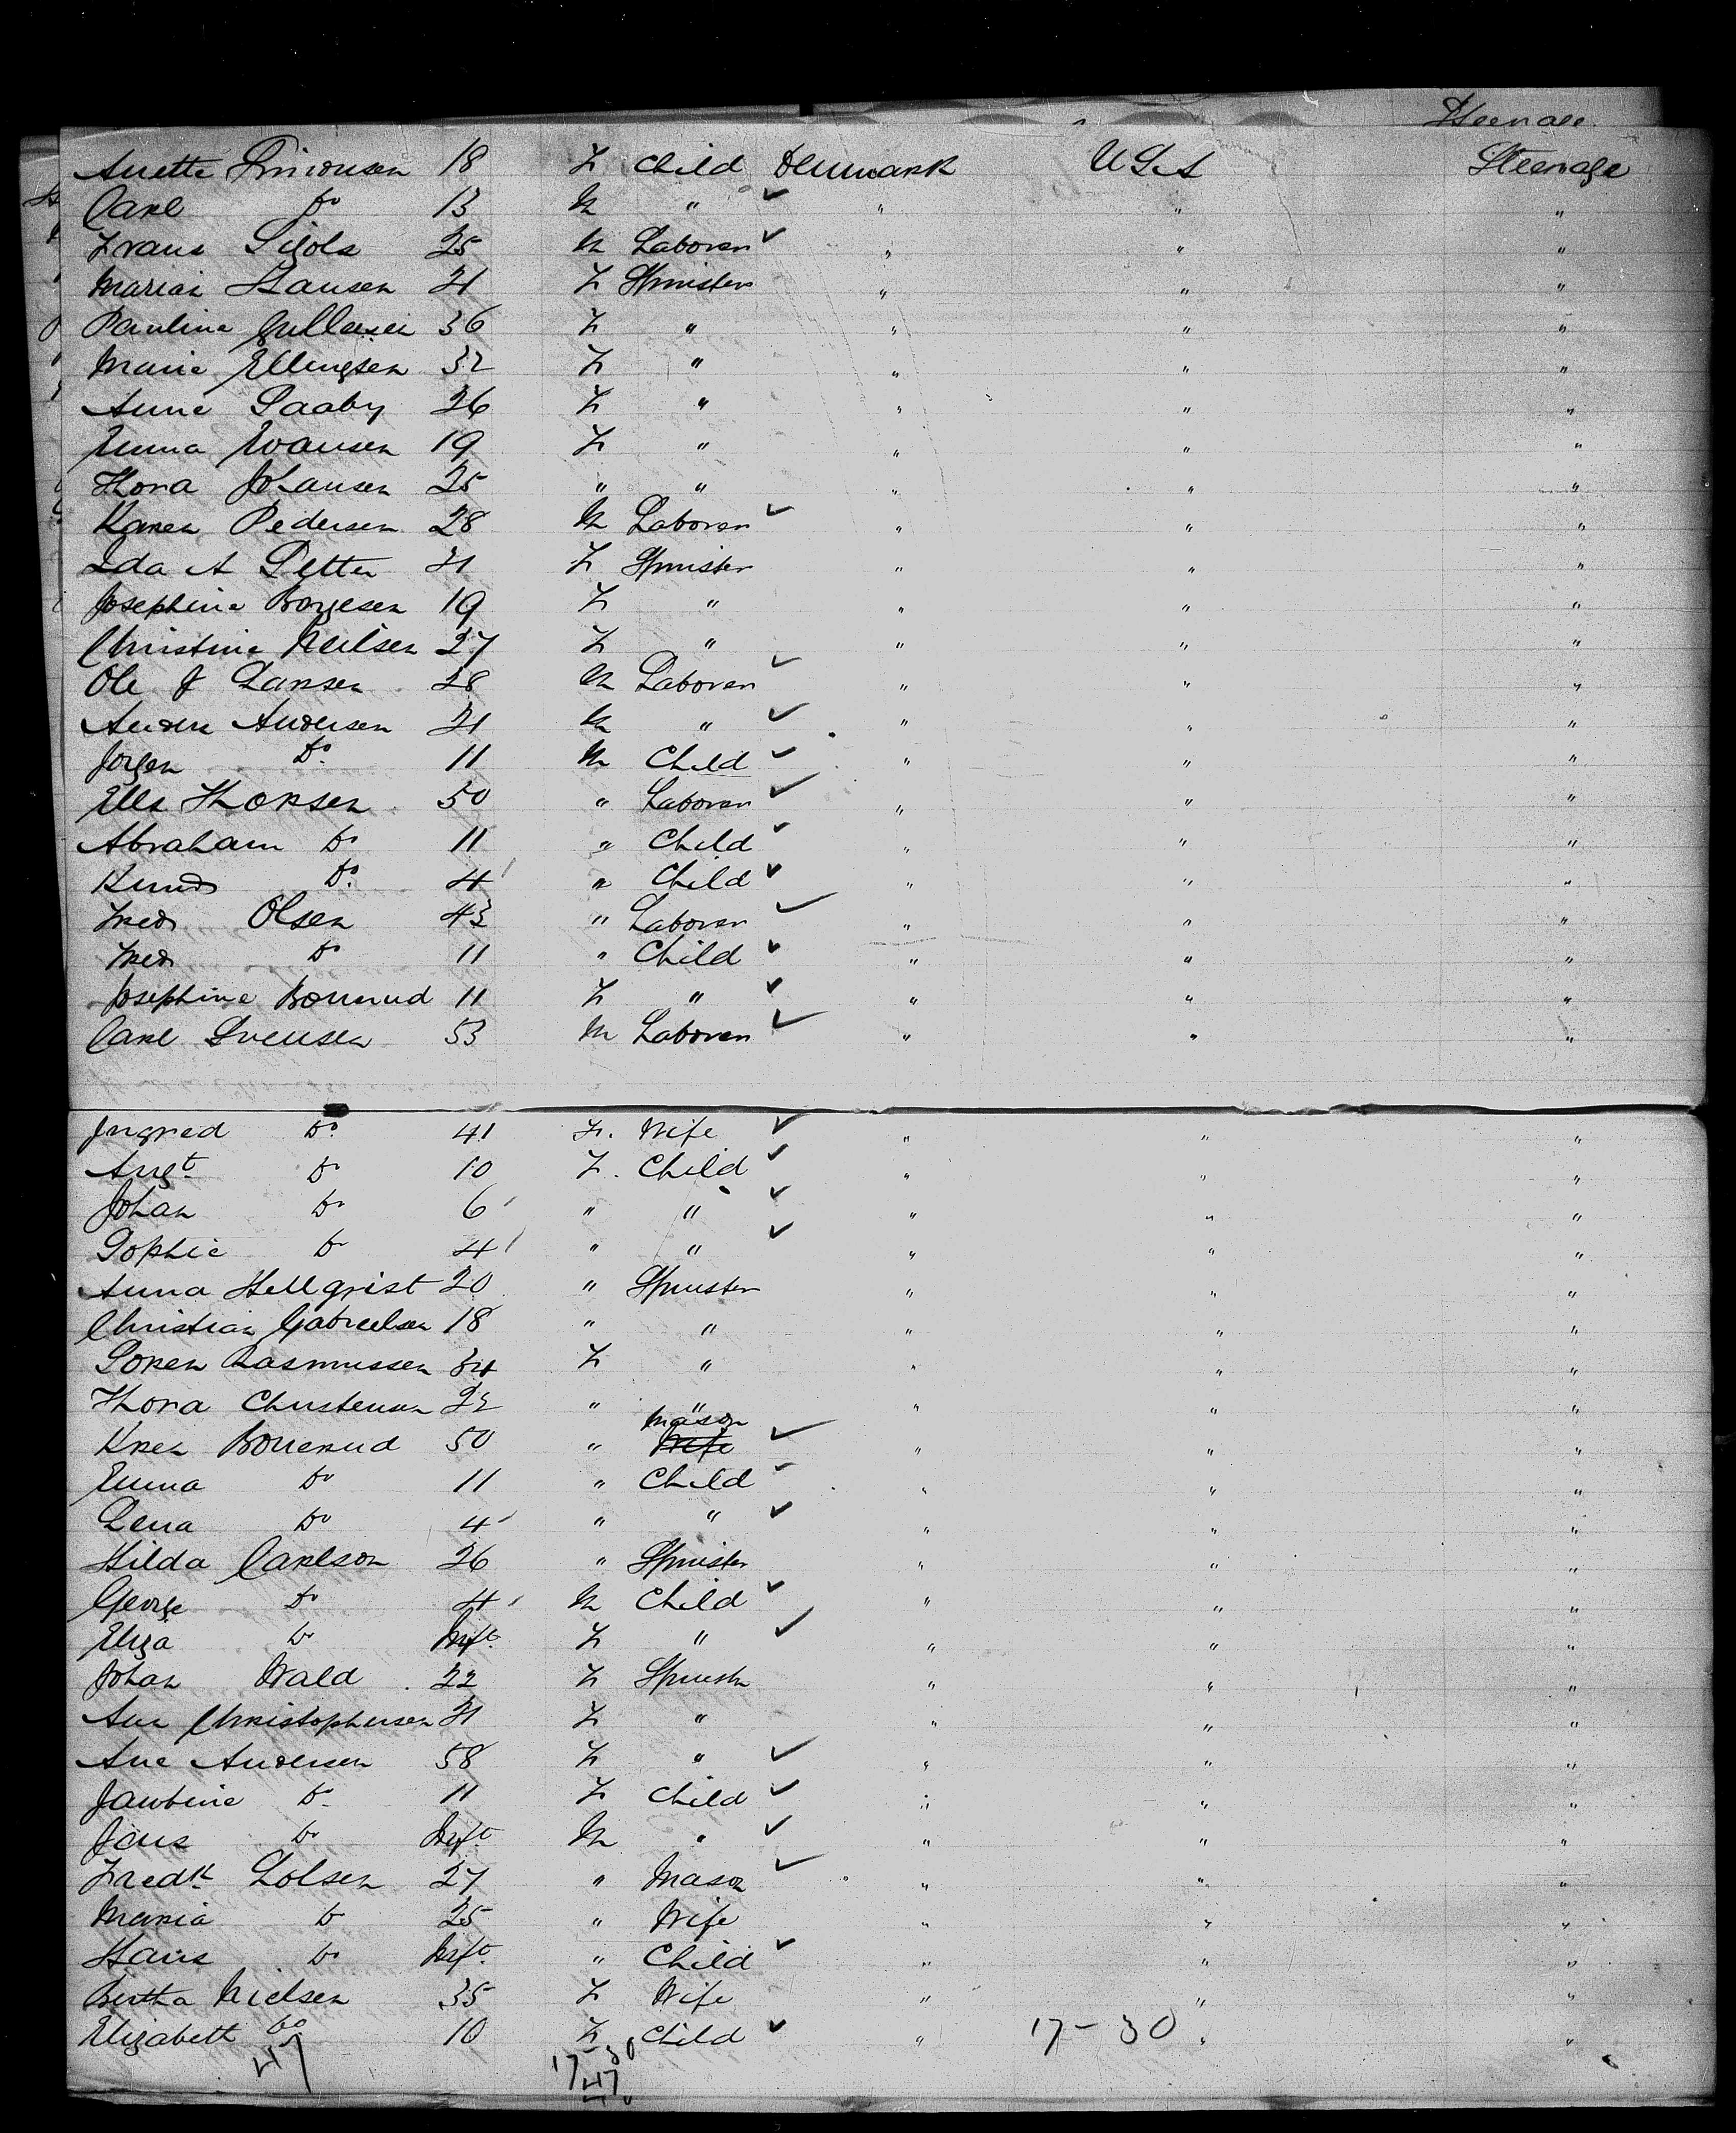 Steerage
Anette Simonsen 18 F Child Denmark USA Steerage
Carl Do 13 M " " " "
Frans 25 M Laborer " " "
Marian Hansen 21 F Spinster " " "
Pauline 36 F " " " "
Marie Ellingsen 32 F " " " "
Anne Saaby 26 F " " " "
Emma 19 F " " " "
Thora Johansen 25 " " " " "
Karen Pedersen 28 M Laborer " " "
Ida A Petter 21 F Spinster " " "
Josephine Borgesen 19 F " " " "
Christine Neilsen 27 F " " " "
Ole J Larsen 28 M Laborer " " "
Anders Andersen 21 M " " " "
Jorgen Do 11 M Child " " "
Ells Thorsen 50 " Laborer " " "
Abraham Do 11 " Child " " "
Knud Do 4 " Child " " "
Fred Olsen 43 " Laborer " " "
Fred Do 11 " Child " " "
Josephine 11 F " " " "
Carl Svensen 53 M Laborer " " "
Ingred Do 41 F. Wife " " "
Augt Do 10 F. Child " " "
Johan Do 6 " " " " "
Sophie Do 4 " " " " "
Anna Hellqrist 20 " Spinster " " "
Christian Gabrielsen 18 " " " " "
Soren Rasmussen 34 F " " " "
Thora Christensen 22 " " " " "
Mason
Borrerud 50 " Wife " " "
Emma Do 11 " Child " " "
Lena Do 4 " " " " "
Hilda Carlson 26 " Spinster " " "
George Do 4 M Child " " "
Eliza Do Inft. F " " " "
Johan Wald 22 F Spinster " " "
Ane Christophersen 21 F " " " "
Ane Andersen 58 F " " " "
Do 11 F Child " " "
Jans Do Inft. M " " " "
Fredk Lolsen 27 " Mason " " "
Maria Do 25 " Wife " " "
Hans Do Inft. " Child " " "
Bertha Nielsen 35 F Wife " " "
Elizabeth Do 10 F Child " 17-30 " "
47 17-30
47